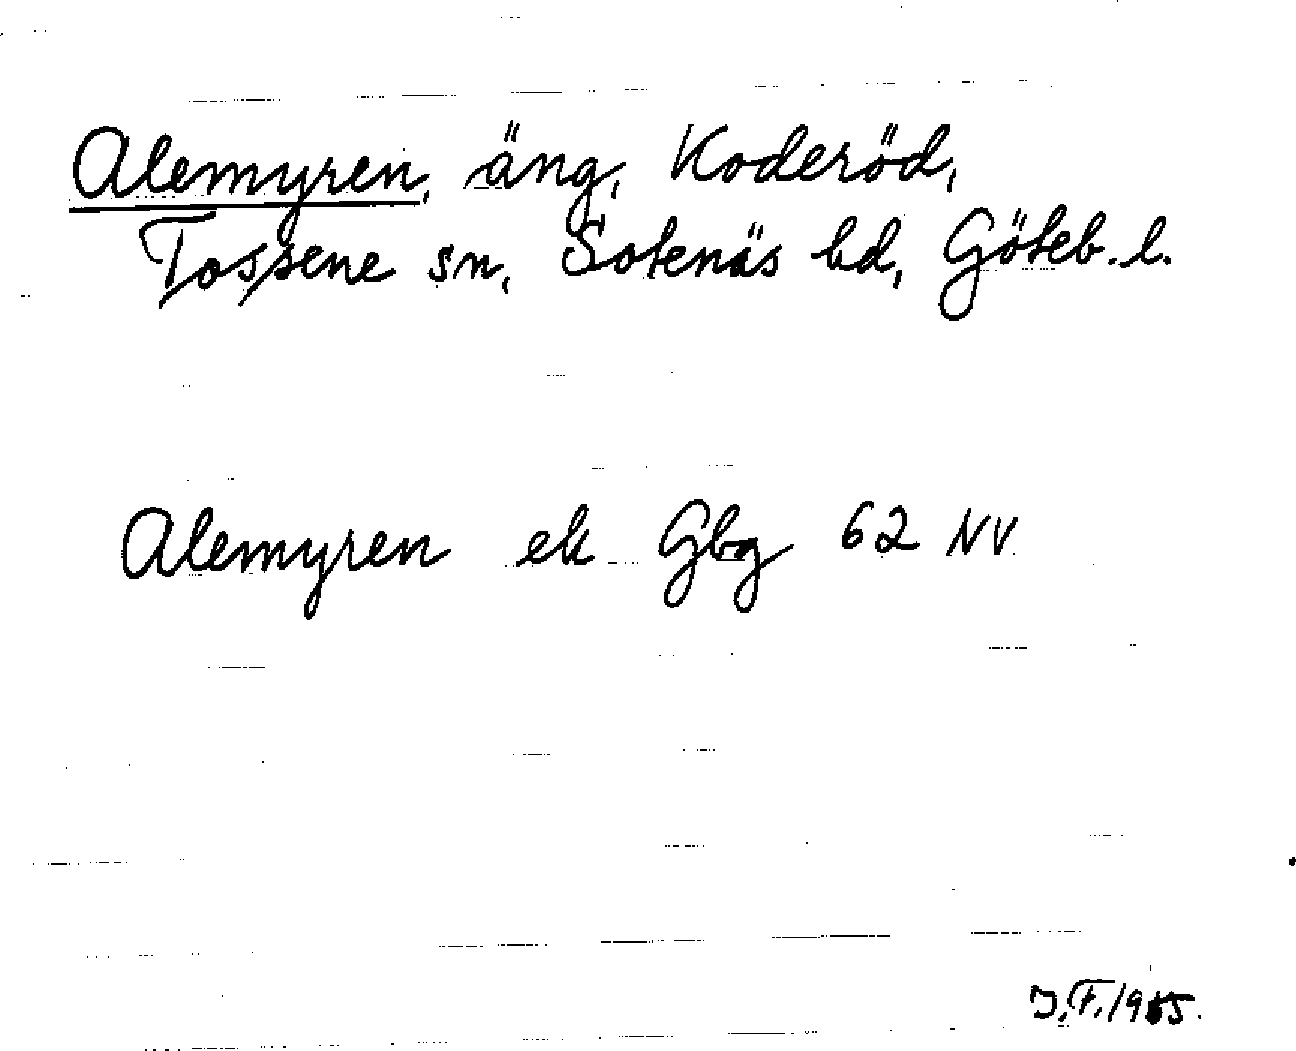 Alemyren, äng, Koderöd,
Tossene sn, Sotenäs hd, Göteb. l.
Alemyren ek Gbg 62 NV
J.F. 1955.